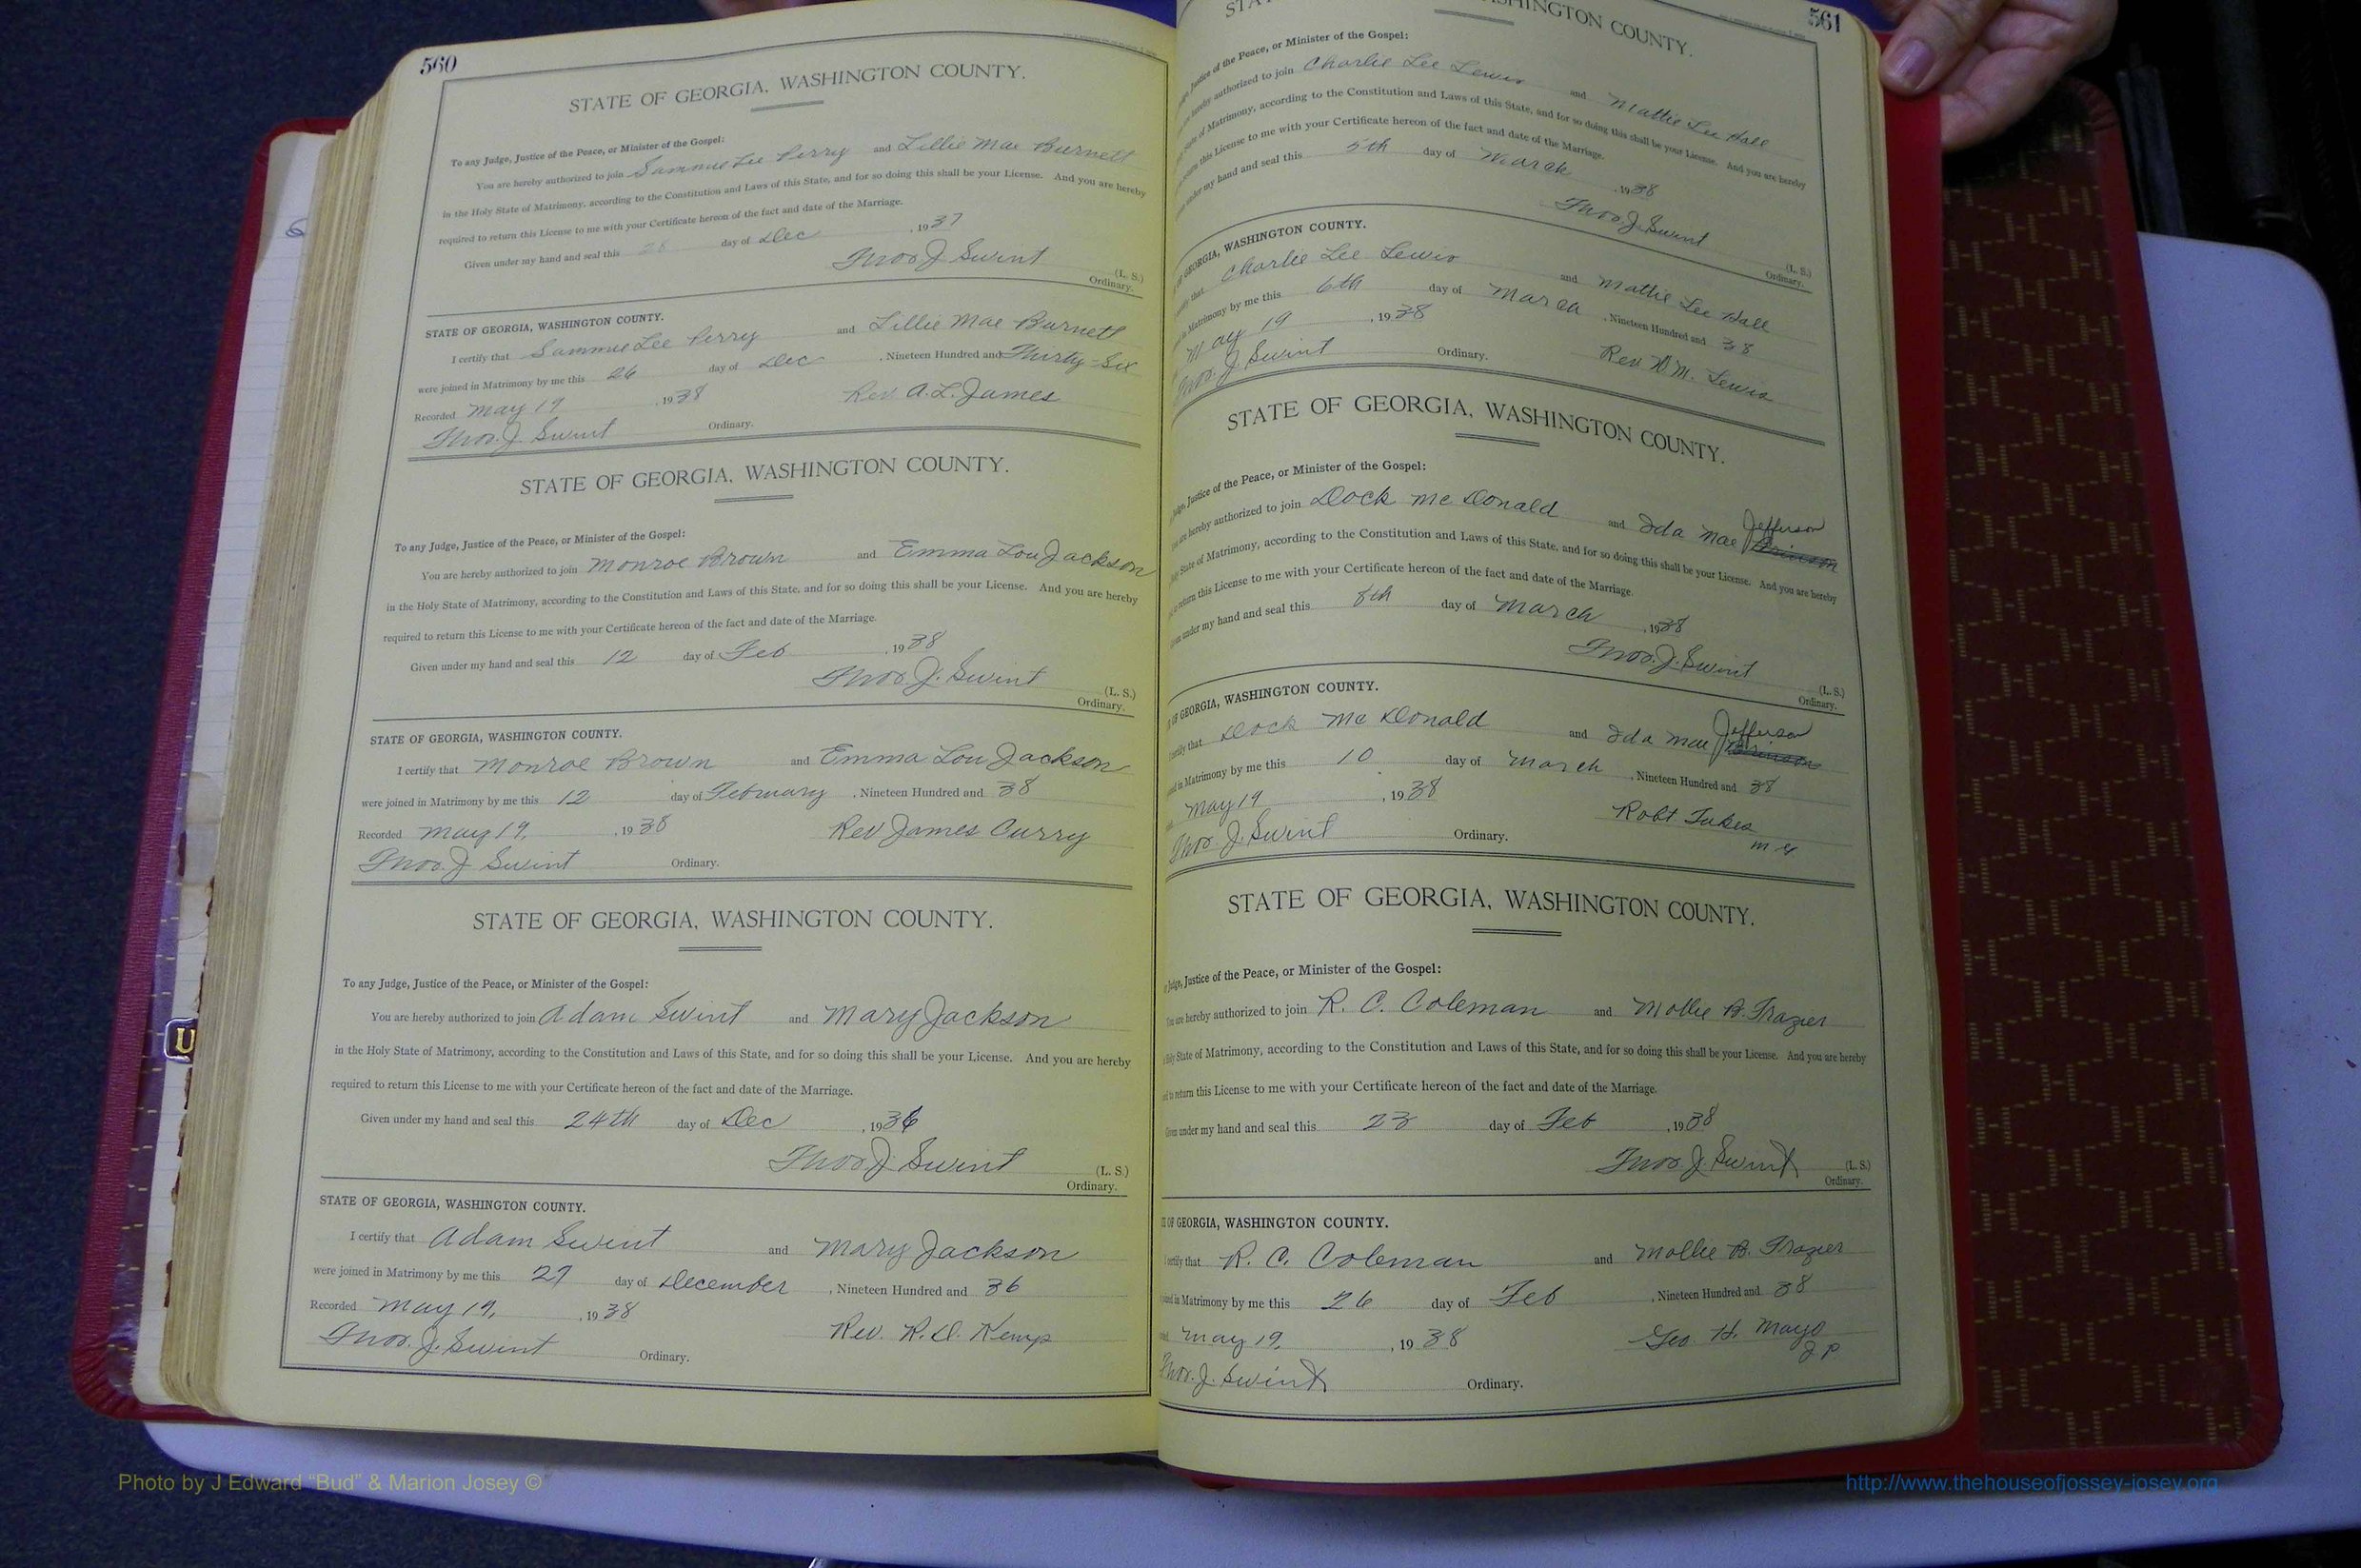 560
STATE OF GEORGIA, WASHINGTON COUNTY.
To any Judge, Justice of the Peace, or Minister of the Gospel:
You are hereby authorized to join Sammie Lee Perry and Lillie Mae Burnett
in the Holy State of Matrimony, according to the Constitution and Laws of this State, and for so doing this shall be your License. And you are hereby
required to return this License to me with your Certificate hereon of the fact and date of the Marriage.
Given under my hand and seal this 28 day of Dec , 1937
Thos. J. Swint (L. S.)
Ordinary.
STATE OF GEORGIA, WASHINGTON COUNTY.
I certify that Sammie Lee Perry and Lillie Mae Burnett
were joined in Matrimony by me this 26 day of Dec , Nineteen Hundred and Thirty-Six
Recorded May 19 , 1938 Rev. A. L. James
Thos. J. Swint Ordinary.
STATE OF GEORGIA, WASHINGTON COUNTY.
To any Judge, Justice of the Peace, or Minister of the Gospel:
You are hereby authorized to join Monroe Brown and Emma Lou Jackson
in the Holy State of Matrimony, according to the Constitution and Laws of this State, and for so doing this shall be your License. And you are hereby
required to return this License to me with your Certificate hereon of the fact and date of the Marriage.
Given under my hand and seal this 12 day of Feb , 1938
Thos. J. Swint (L. S.)
Ordinary.
STATE OF GEORGIA, WASHINGTON COUNTY.
I certify that Monroe Brown and Emma Lou Jackson
were joined in Matrimony by me this 12 day of February , Nineteen Hundred and 38
Recorded May 19, , 1938 Rev James Curry
Thos. J Swint Ordinary.
STATE OF GEORGIA, WASHINGTON COUNTY.
To any Judge, Justice of the Peace, or Minister of the Gospel:
You are hereby authorized to join Adam Swint and Mary Jackson
in the Holy State of Matrimony, according to the Constitution and Laws of this State, and for so doing this shall be your License. And you are hereby
required to return this License to me with your Certificate hereon of the fact and date of the Marriage.
Given under my hand and seal this 24th day of Dec , 1936
Thos. J. Swint (L. S.)
Ordinary.
STATE OF GEORGIA, WASHINGTON COUNTY.
I certify that Adam Swint and Mary Jackson
were joined in Matrimony by me this 27 day of December , Nineteen Hundred and 36
Recorded May 19, , 1938 Rev. R. D. Kemp
Thos. J. Swint Ordinary.
561
WASHINGTON COUNTY.
Judge, Justice of the Peace, or Minister of the Gospel:
hereby authorized to join Charlie Lee Lewis and Mattie Lee Hall
State of Matrimony, according to the Constitution and Laws of this State, and for so doing this shall be your License. And you are hereby
return this License to me with your Certificate hereon of the fact and date of the Marriage.
under my hand and seal this 5th day of March , 1938
Thos. J. Swint (L. S.)
Ordinary.
OF GEORGIA, WASHINGTON COUNTY.
certify that Charlie Lee Lewis and Mattie Lee Hall
in Matrimony by me this 6th day of March , Nineteen Hundred and 38
May 19 , 1938 Rev D M. Lewis
Thos. J. Swint Ordinary.
STATE OF GEORGIA, WASHINGTON COUNTY.
Judge, Justice of the Peace, or Minister of the Gospel:
You are hereby authorized to join Dock Mc Donald and Ida Mae Jefferson Brinson
Holy State of Matrimony, according to the Constitution and Laws of this State, and for so doing this shall be your License. And you are hereby
to return this License to me with your Certificate hereon of the fact and date of the Marriage.
Given under my hand and seal this 8th day of March , 1938
Thos. J. Swint (L. S.)
Ordinary.
OF GEORGIA, WASHINGTON COUNTY.
I certify that Dock Mc Donald and Ida Mae Jefferson Brinson
in Matrimony by me this 10 day of March , Nineteen Hundred and 38
May 19 , 1938 Robt Tukes
Thos. J. Swint Ordinary.
STATE OF GEORGIA, WASHINGTON COUNTY.
Judge, Justice of the Peace, or Minister of the Gospel:
You are hereby authorized to join R. C. Coleman and Mollie B. Frazier
Holy State of Matrimony, according to the Constitution and Laws of this State, and for so doing this shall be your License. And you are hereby
to return this License to me with your Certificate hereon of the fact and date of the Marriage.
Given under my hand and seal this 23 day of Feb , 1938
Thos. J. Swint (L. S.)
Ordinary.
OF GEORGIA, WASHINGTON COUNTY.
I certify that R. C. Coleman and Mollie B. Frazier
joined in Matrimony by me this 26 day of Feb , Nineteen Hundred and 38
May 19, , 1938 Geo. H. Mayo
J P.
Thos. J. Swint Ordinary.
Photo by J Edward “Bud” & Marion Josey ©
http://www.thehouseofjossey-josey.org